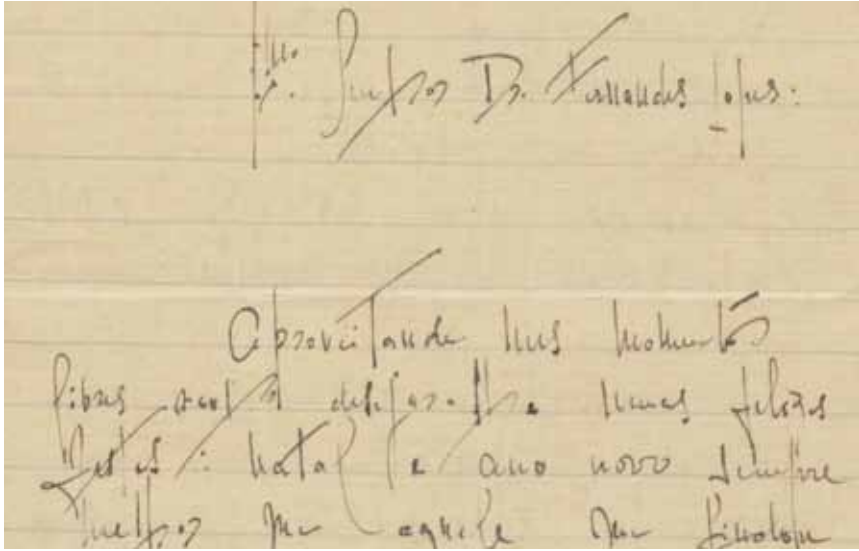 Senhor Dr. Fernandes Lopes:
Aproveitando uns momentos
livres desejar-lhe umas felizes
festas: Natal e ano novo sempre
melhor que aquele que